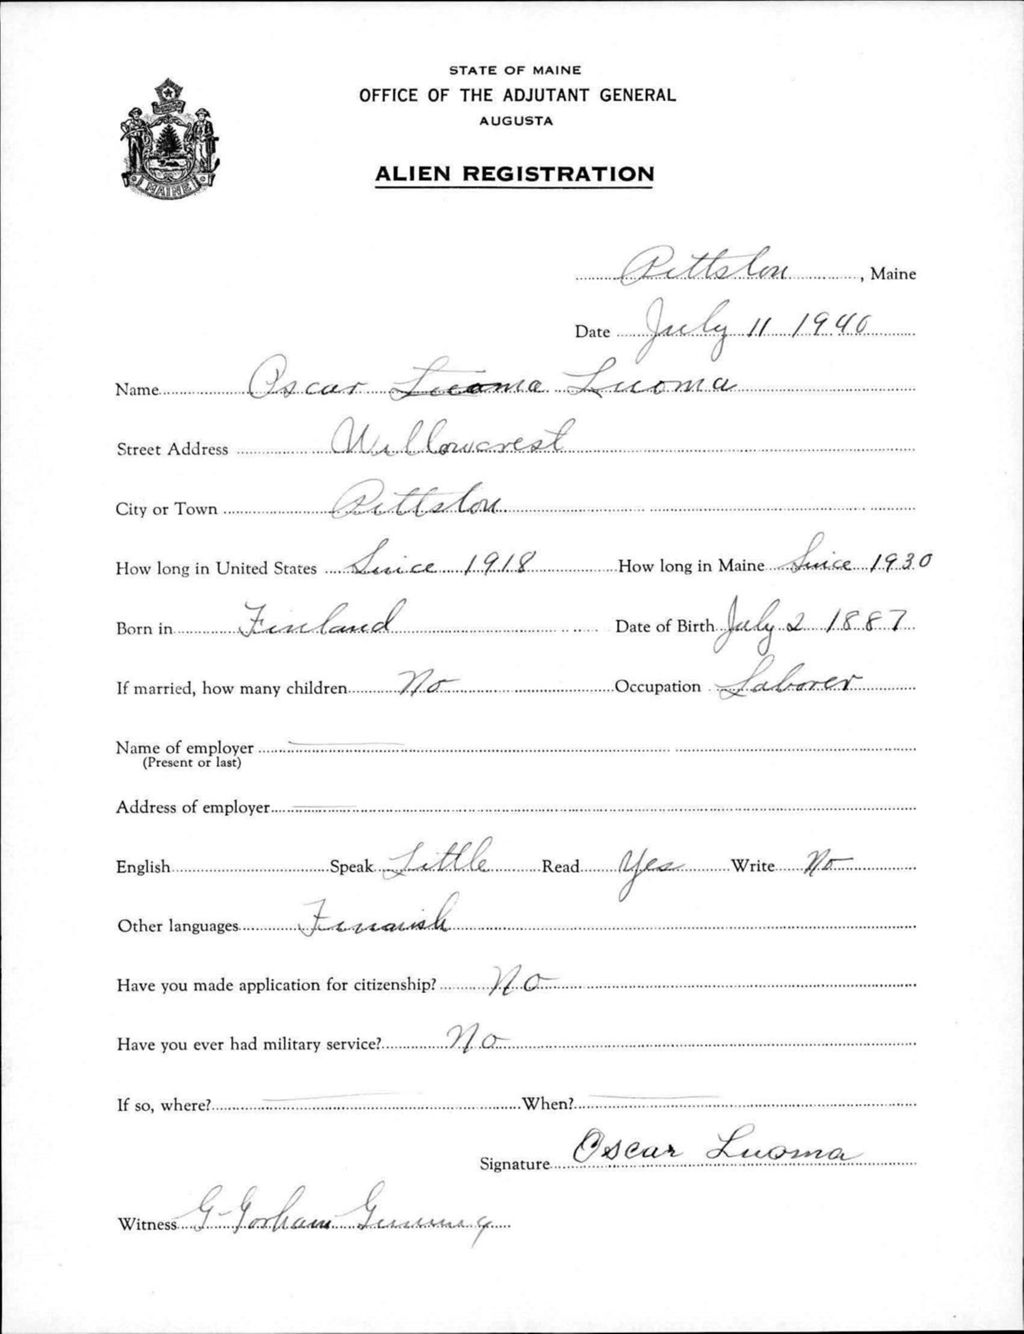 STATE OF MAINE
OFFICE OF THE ADJUTANT GENERAL
AUGUSTA
ALIEN REGISTRATION
MAINE
Pittston, Maine
Date July 11 1940
Name Oscar Luoma Luoma
Street Address Willowcrest
City or Town Pittston
How long in United States Since 1918 How long in Maine Since 1930
Born in Finland Date of Birth July 2 1887
If married, how many children No Occupation Laborer
Name of employer
(Present or last)
Address of employer
English Speak Little Read Yes Write No
Other languages Finnish
Have you made application for citizenship? No
Have you ever had military service? No
If so, where? When?
Signature Oscar Luoma
Witness G Gorham